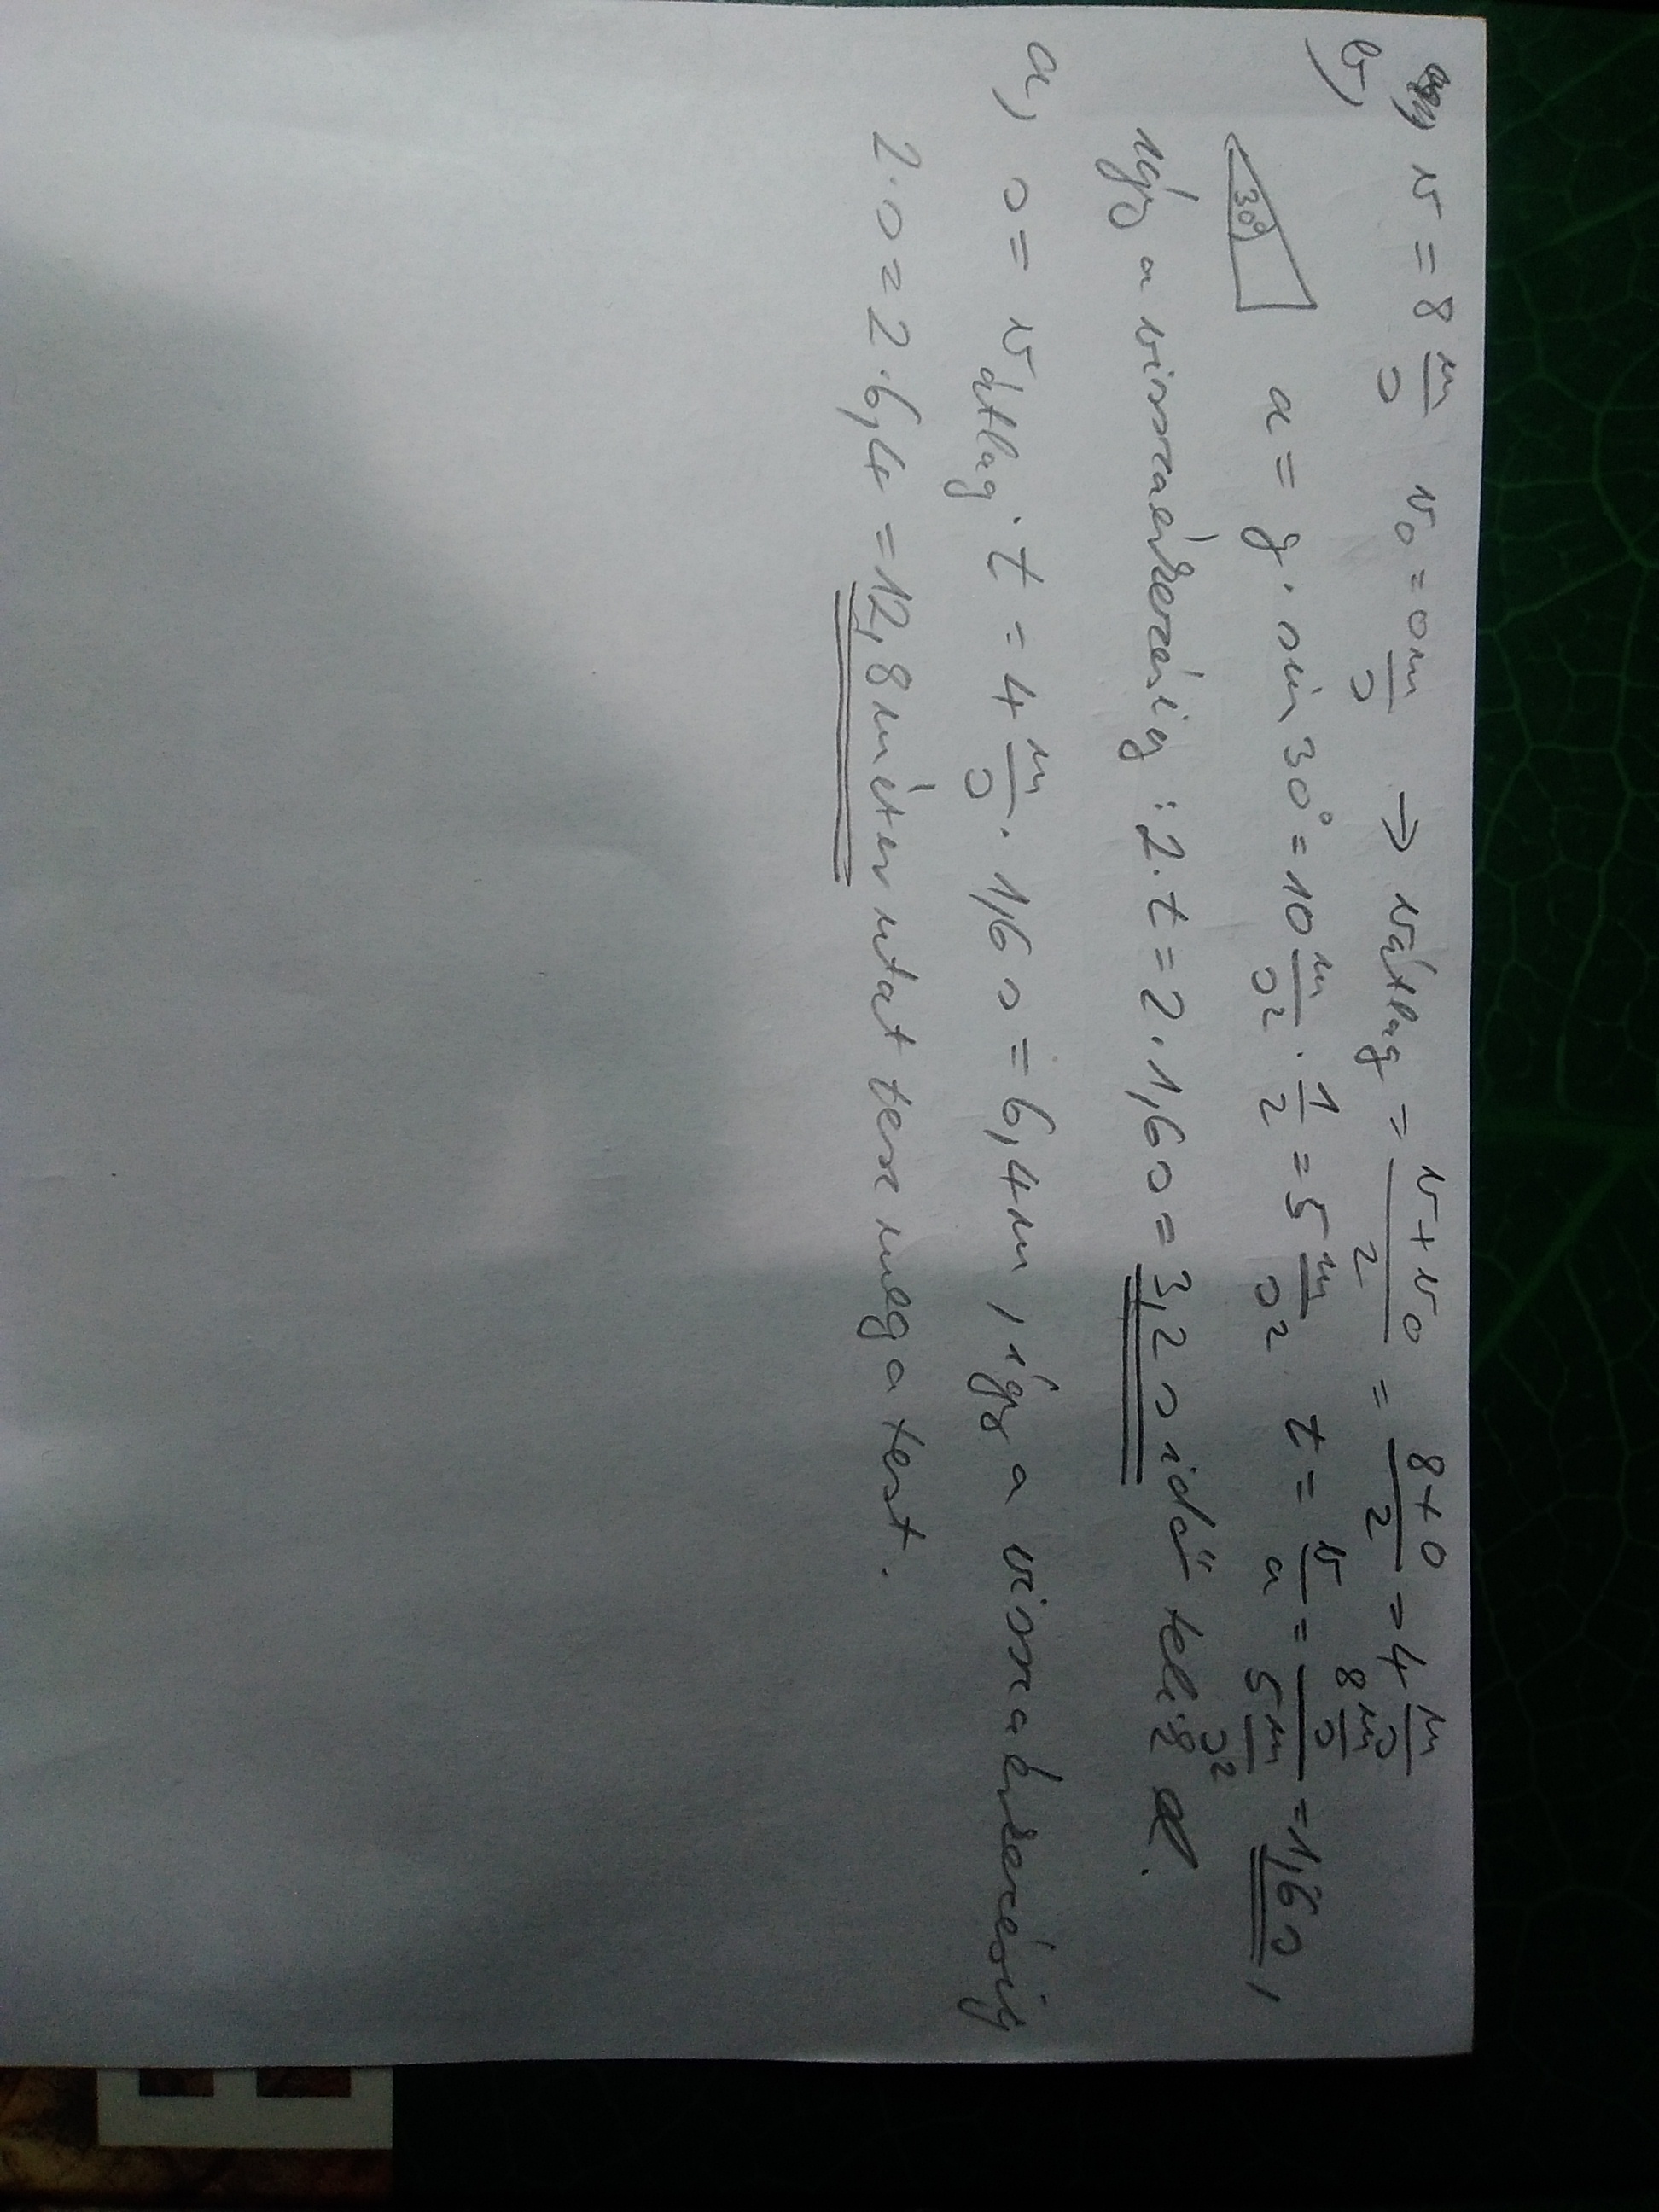 v = 8 m/s v₀ = 0 m/s → v átlag = (v + v₀)/2 = (8 + 0)/2 = 4 m/s
b,
30° a = g · sin 30° = 10 m/s² · 1/2 = 5 m/s² t = v/a = (8 m/s)/(5 m/s²) = 1,6 s,
így a visszaérkezésig : 2 · t = 2 · 1,6 s = 3,2 s idő telik el.
a, s = v átlag · t = 4 m/s · 1,6 s = 6,4 m, így a visszaérkezésig
2 · s = 2 · 6,4 = 12,8 méter utat tesz meg a test.